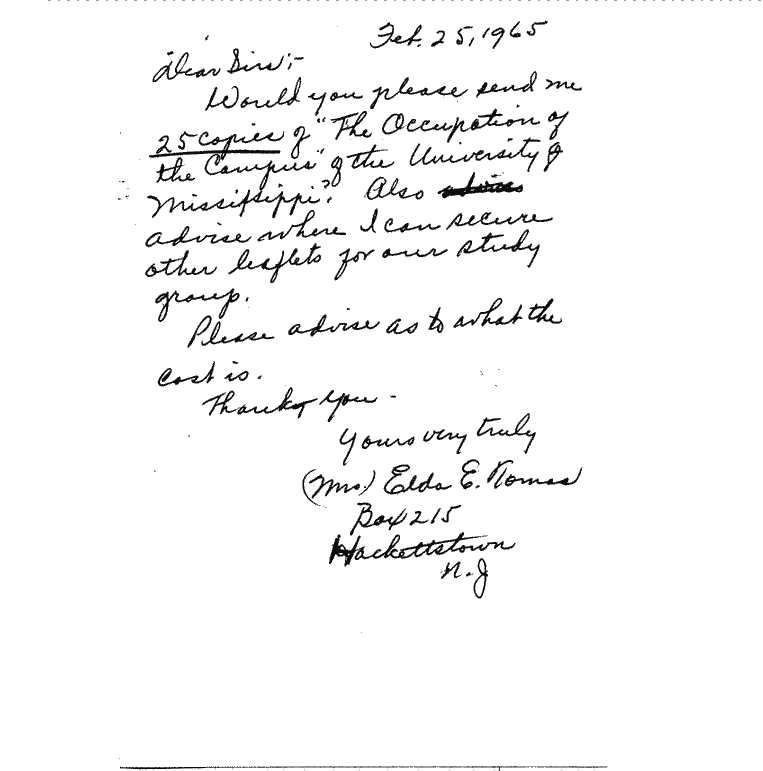 Feb. 25, 1965
Dear Sirs;-
Would you please send me
25 copies of "The Occupation of
the Campus" of the University of
Mississippi? Also
advise where I can secure
other leaflets for our study
group.
Please advise as to what the
cost is.
Thank you -
Yours very truly
(Mrs.) Elda E. Nomas
Box 215
Hackettstown
N.J